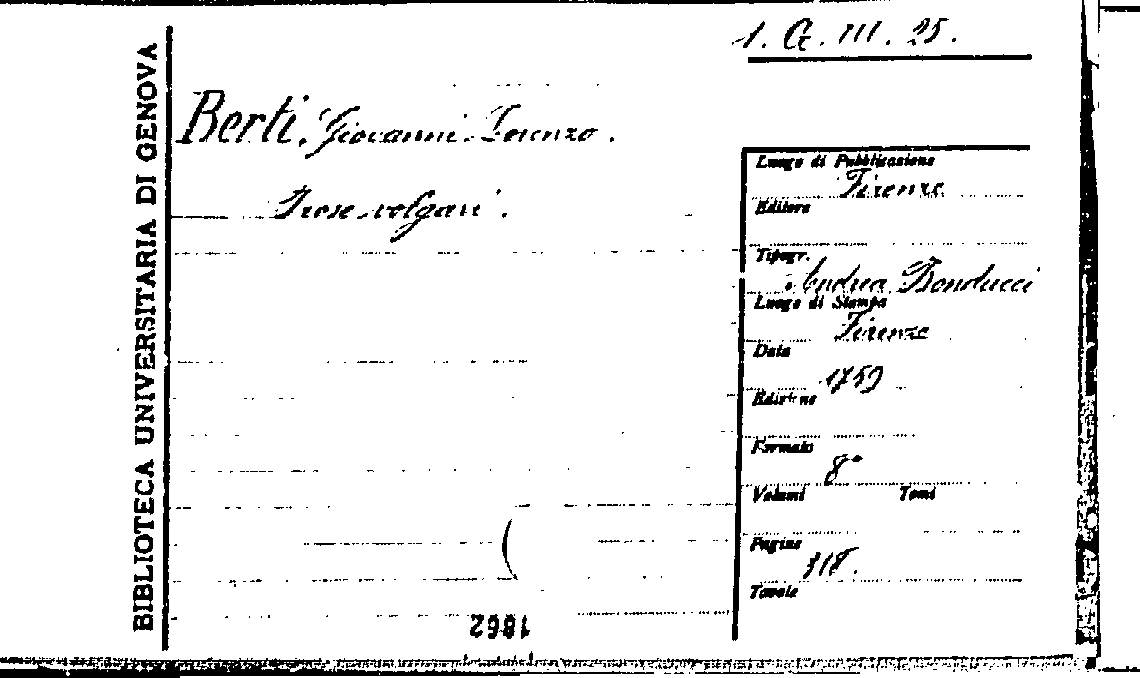 BIBLIOTECA UNIVERSITARIA DI GENOVA
1. G. III. 25.
Berti, Giovanni Lorenzo.
Prose volgari.
Luogo di Pubblicazione
Firenze
Editore
Tipogr.
Andrea Bonducci
Luogo di Stampa
Firenze
Data
1759
Edizione
Formato
8°
Volumi Tomi
Pagine
318.
Tavole
1862